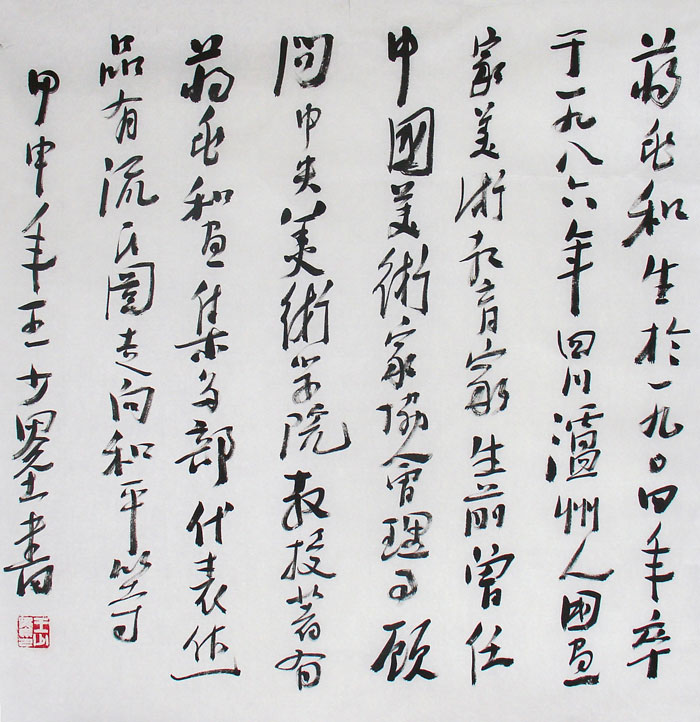 蒋兆和生於一九〇四年卒
于一九八六年四川瀘州人國画
家美術教育家生前曾任
中國美術家協會理事顧
問中央美術学院教授著有
蒋兆和画集多部代表作
品有流民圖走向和平等
甲申年王少書